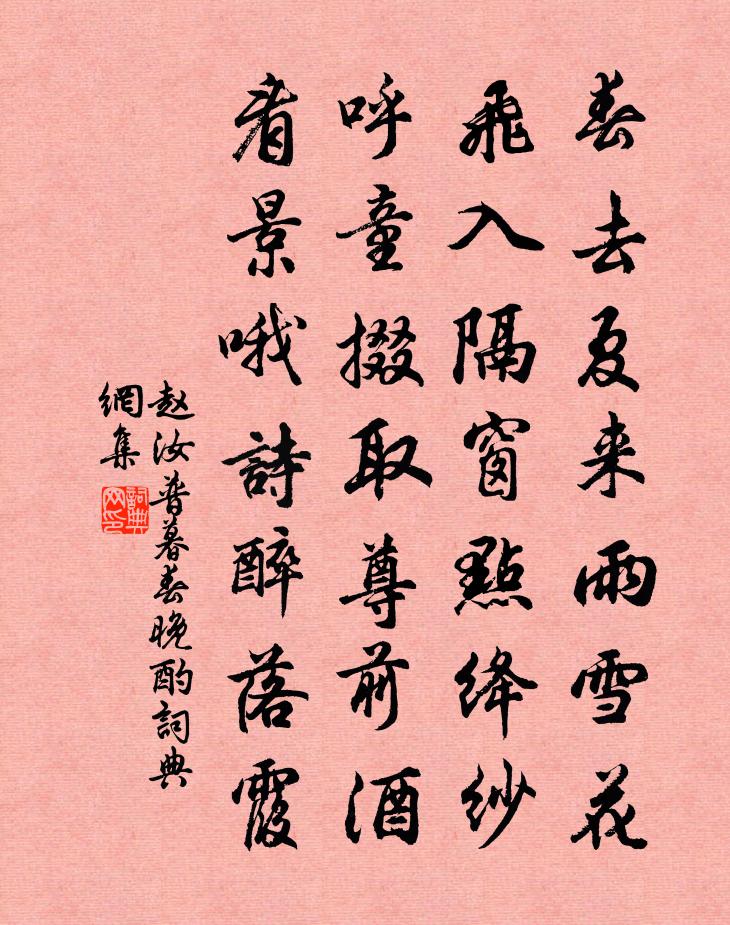 春去夏来雨雪花
飛入隔窗點絳紗
呼童掇取尊前酒
看景哦詩醉落霞
赵汝普暮春晚酌詞典
網集
詞典
网印